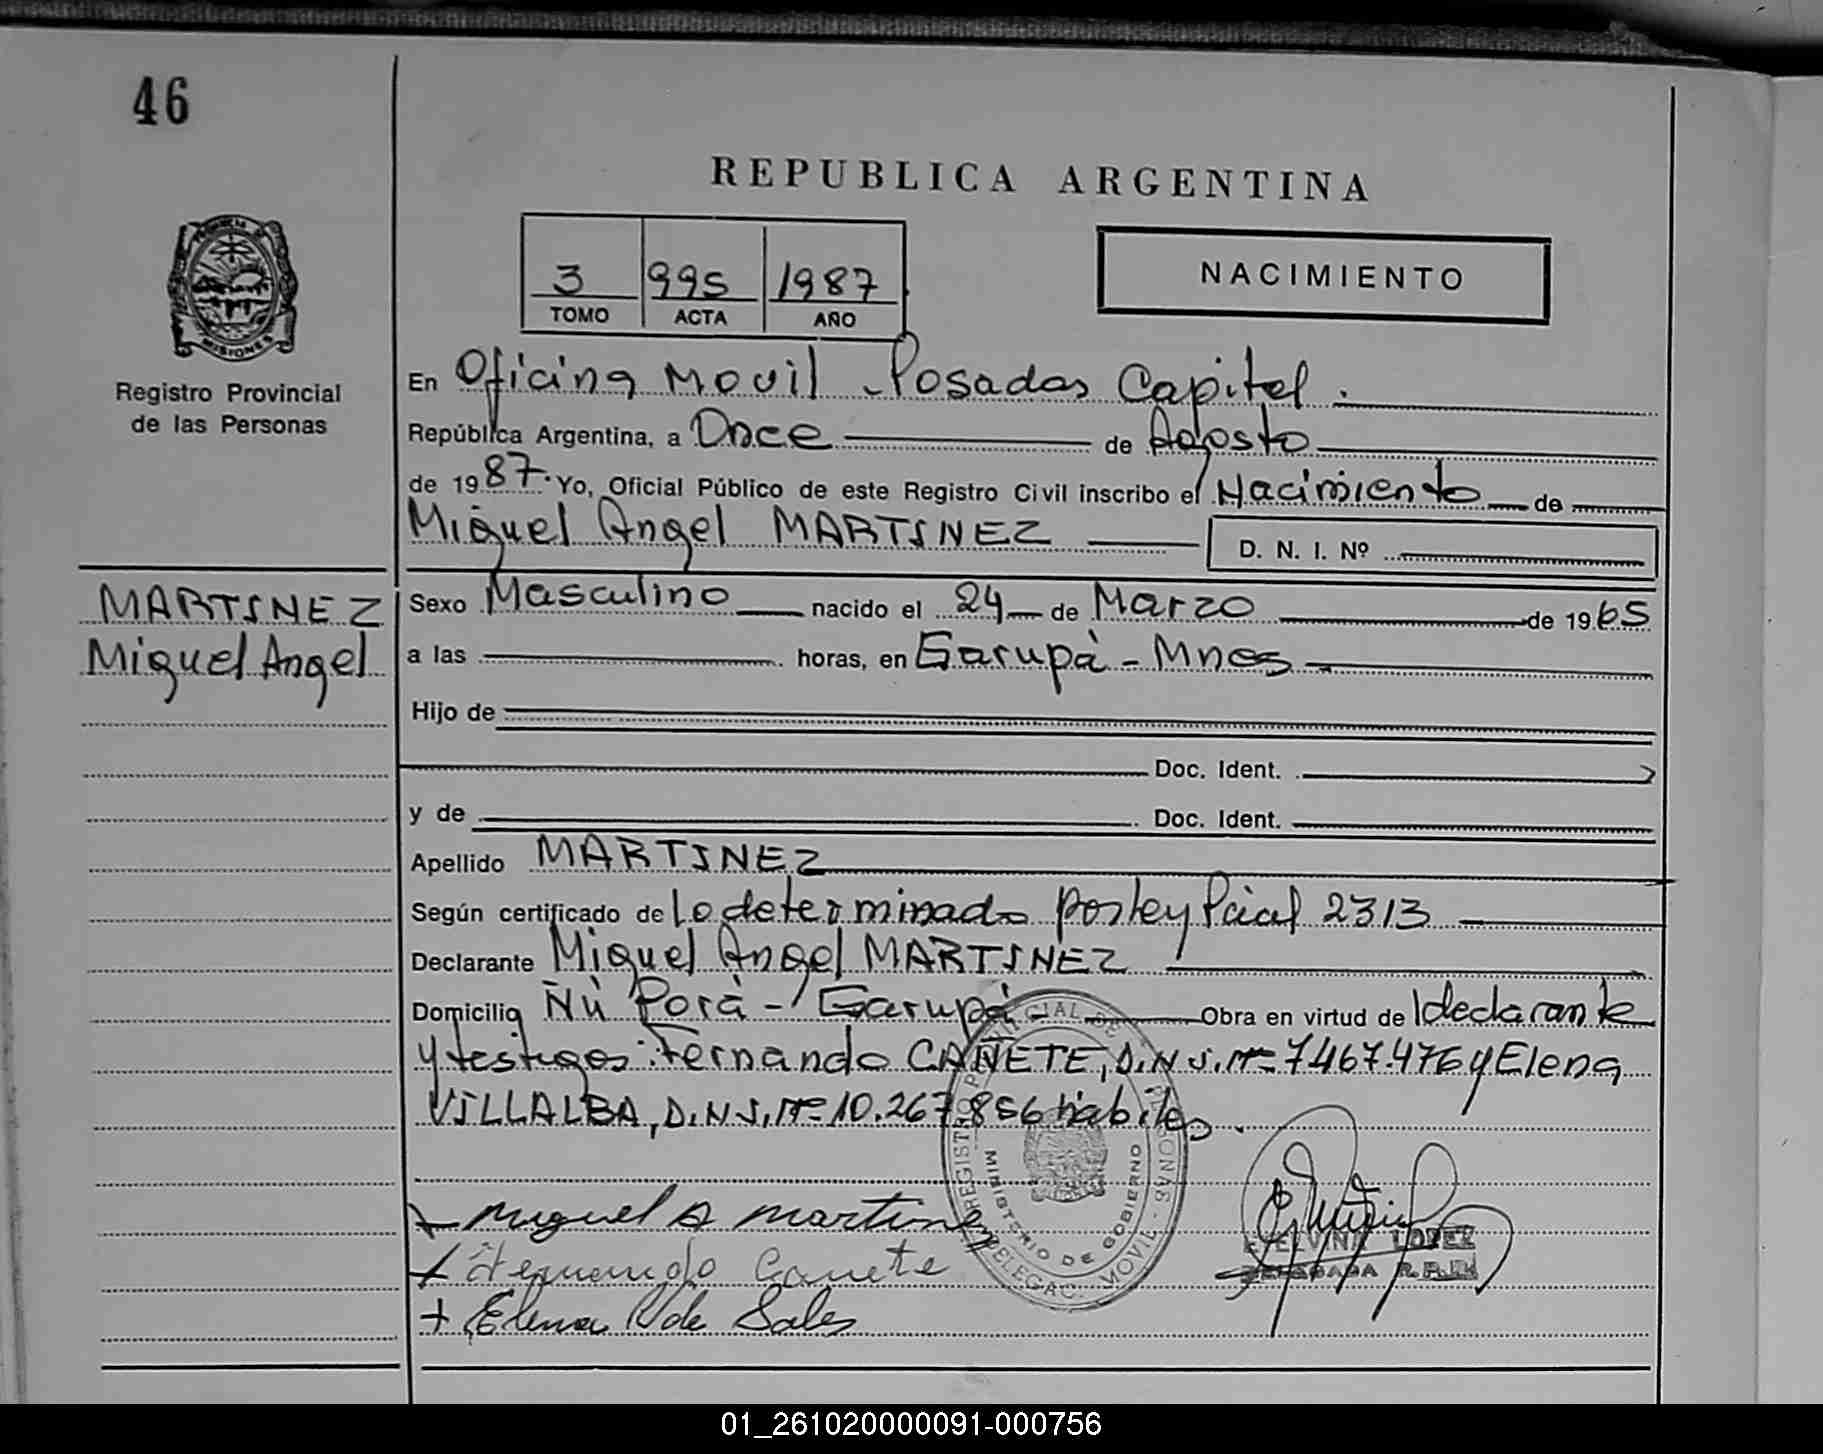 46
REPUBLICA ARGENTINA
3 995 1987
TOMO ACTA AÑO
NACIMIENTO
MISIONES
Registro Provincial
de las Personas
En Oficina Movil - Posadas Capital.
República Argentina, a Doce de Agosto
de 1987. Yo, Oficial Público de este Registro Civil inscribo el Nacimiento de
Miguel Angel MARTINEZ D. N. I. Nº
MARTINEZ
Miguel Angel
Sexo Masculino nacido el 24 de Marzo de 1965
a las horas, en Garupá - Mnes
Hijo de
Doc. Ident.
y de Doc. Ident.
Apellido MARTINEZ
Según certificado de Lo determinado por ley Pcial 2313
Declarante Miguel Angel MARTINEZ
Domicilio Ñú Porá - Garupá - Obra en virtud de declarante
y testigos: Fernando CAÑETE, D.N.I. Nº 7467.476 y Elena
VILLALBA, D.N.I. Nº 10.267.856 hábiles.
REGISTRO PROVINCIAL DE PERSONAS - DELEGAC. MOVIL -
MINISTERIO DE GOBIERNO
Miguel A Martinez
Canete
Elena V de Sales
ETELVINA LOPEZ
DELEGADA
01_261020000091-000756